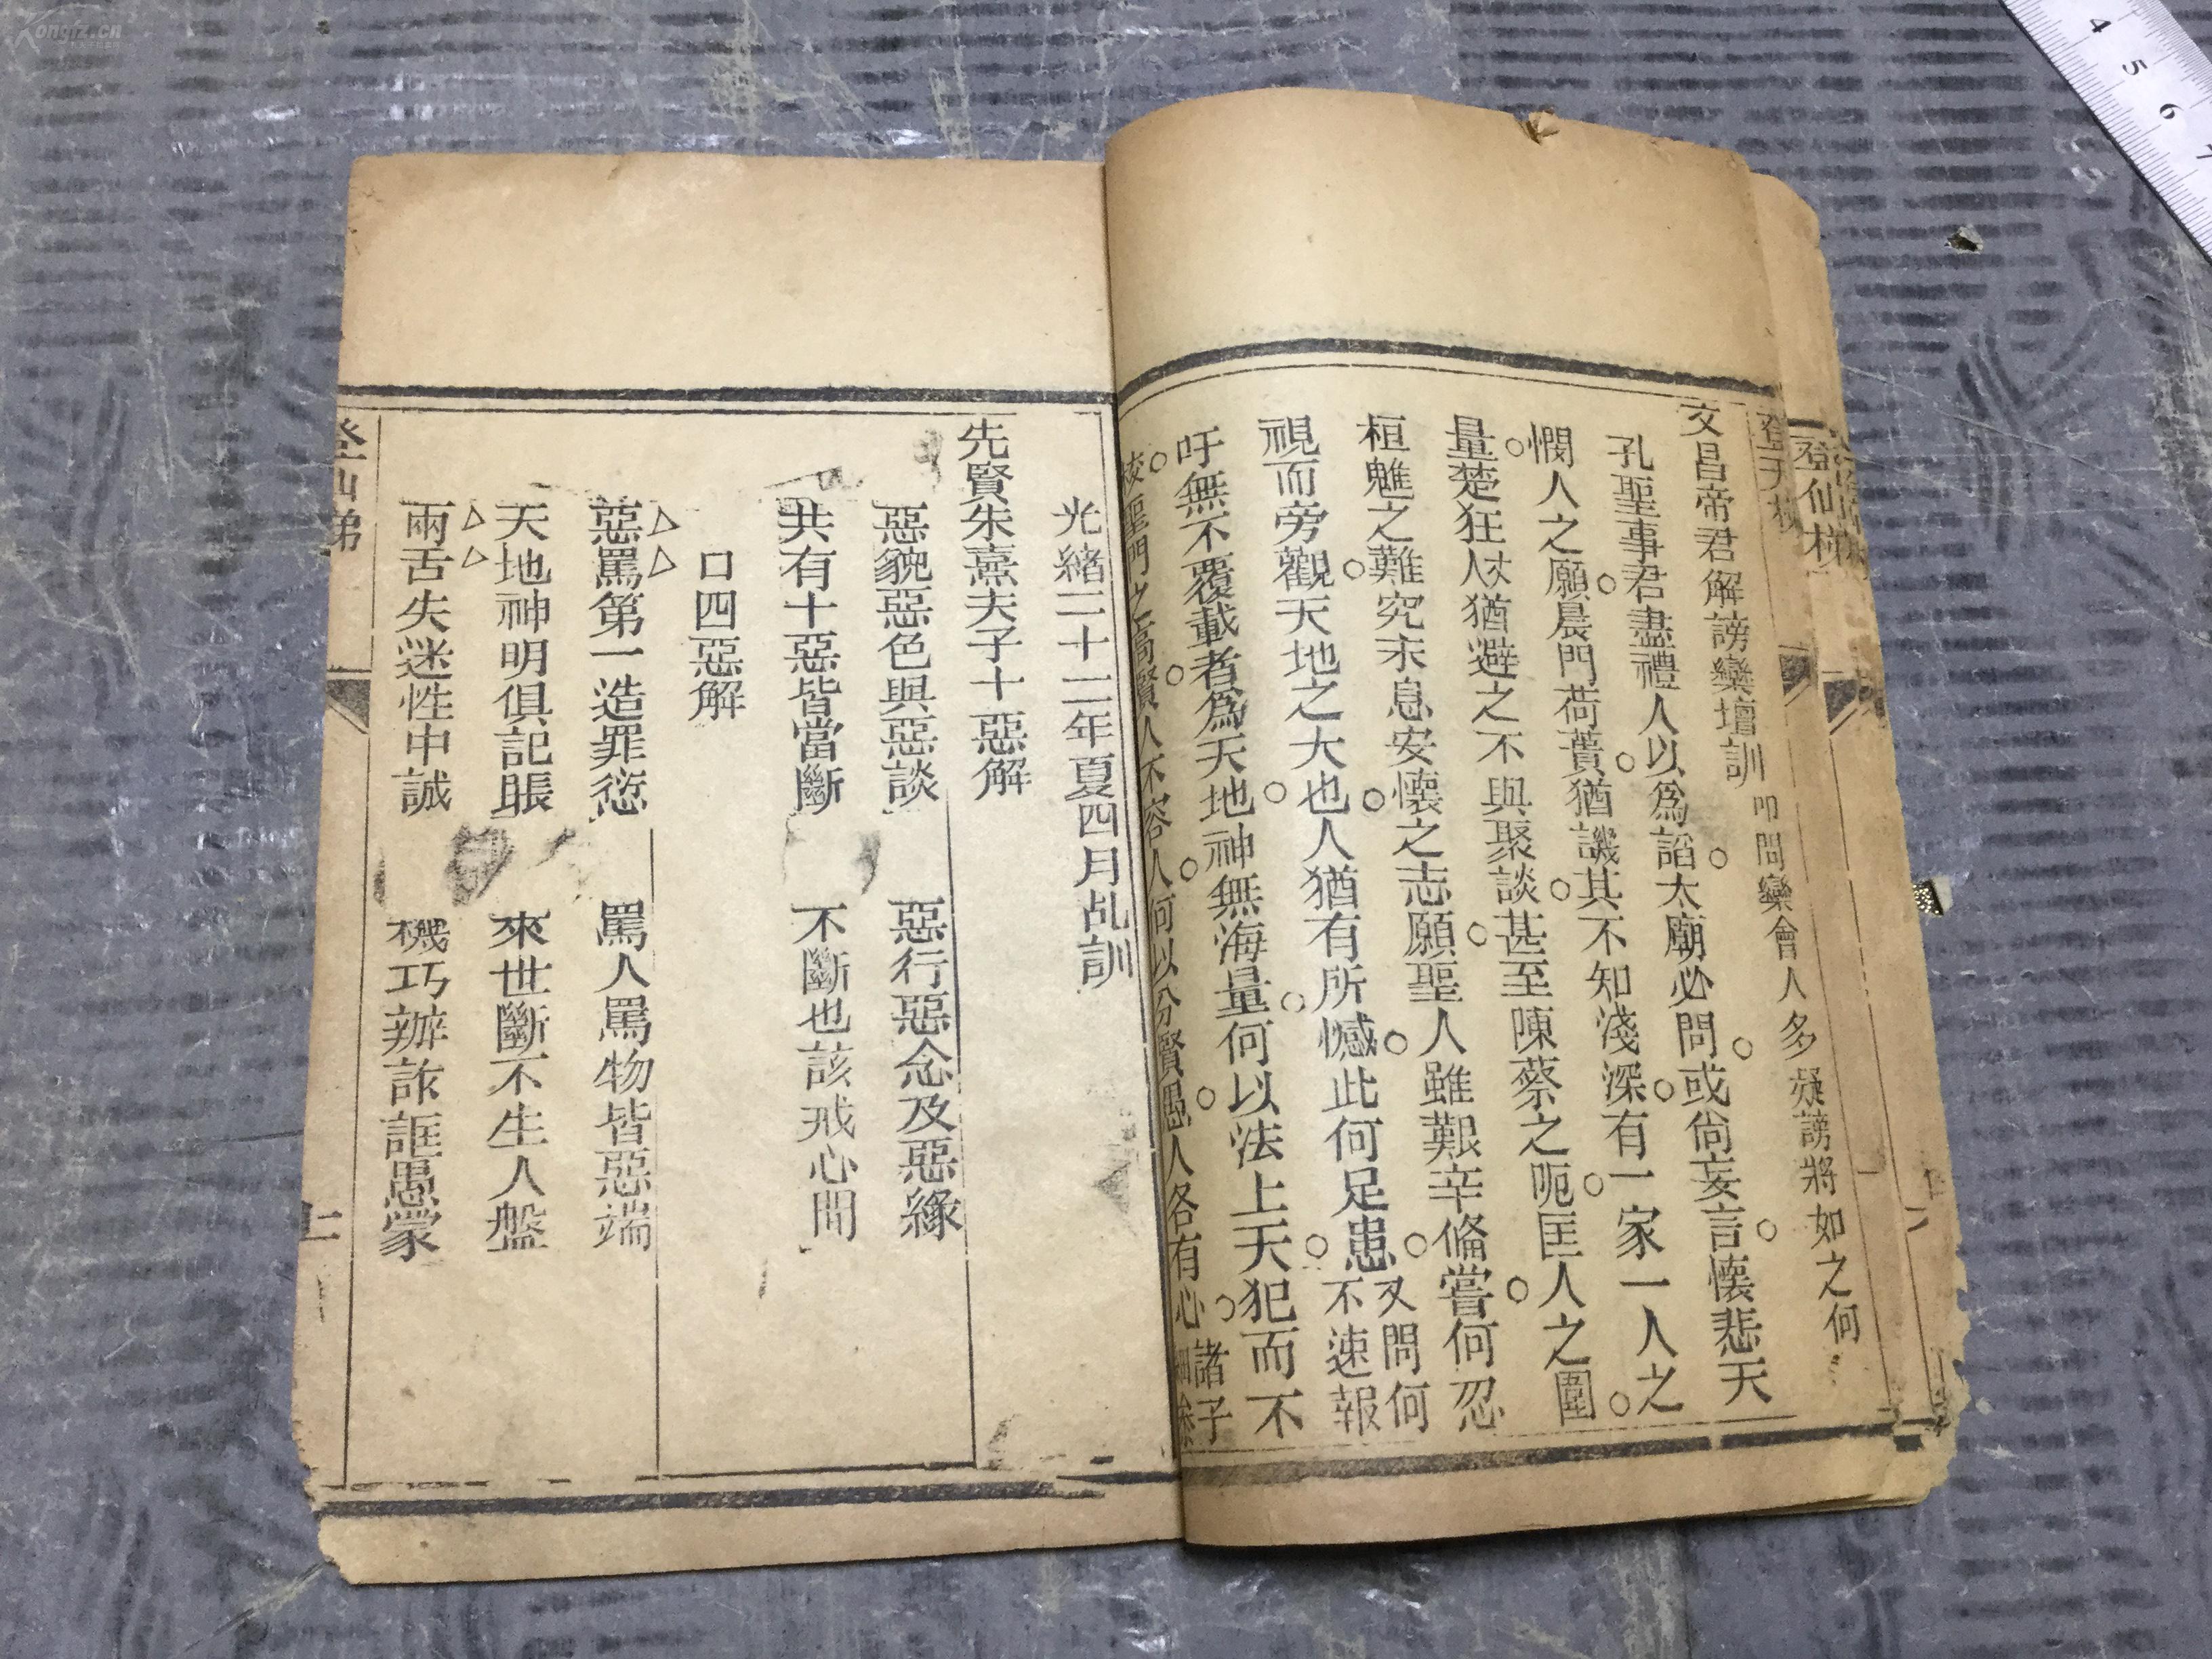 Kongfz.cn
4 5 6 7
登仙梯
文昌帝君解謗欒壇訓 叩問欒會人多疑謗將如之何
孔聖事君盡禮人以爲謟○太廟必問○或尙妄言○懷悲天
憫人之願○晨門荷蕢猶譏其不知淺深○有一家一人之
量○楚狂人猶避之不與聚談○甚至陳蔡之呃○匡人之圍○
桓魋之難○究未息安懷之志願○聖人雖艱辛偹嘗○何忍
視而旁觀○天地之大也○人猶有所憾○此何足患○又問何不速報
吁無不覆載者爲天地○神無海量○何以法上天○犯而不
校○聖門之高賢○人不容人○何以分賢愚○人各有心○諸子
光緒二十二年夏四月乩訓
先賢朱熹夫子十惡解
惡貌惡色與惡談 惡行惡念及惡緣
共有十惡皆當斷 不斷也該戒心間
口四惡解
惡罵第一造罪愆 罵人罵物皆惡端
天地神明俱記賬 來世斷不生人盤
兩舌失迷性中誠 機巧辦詐誆愚蒙